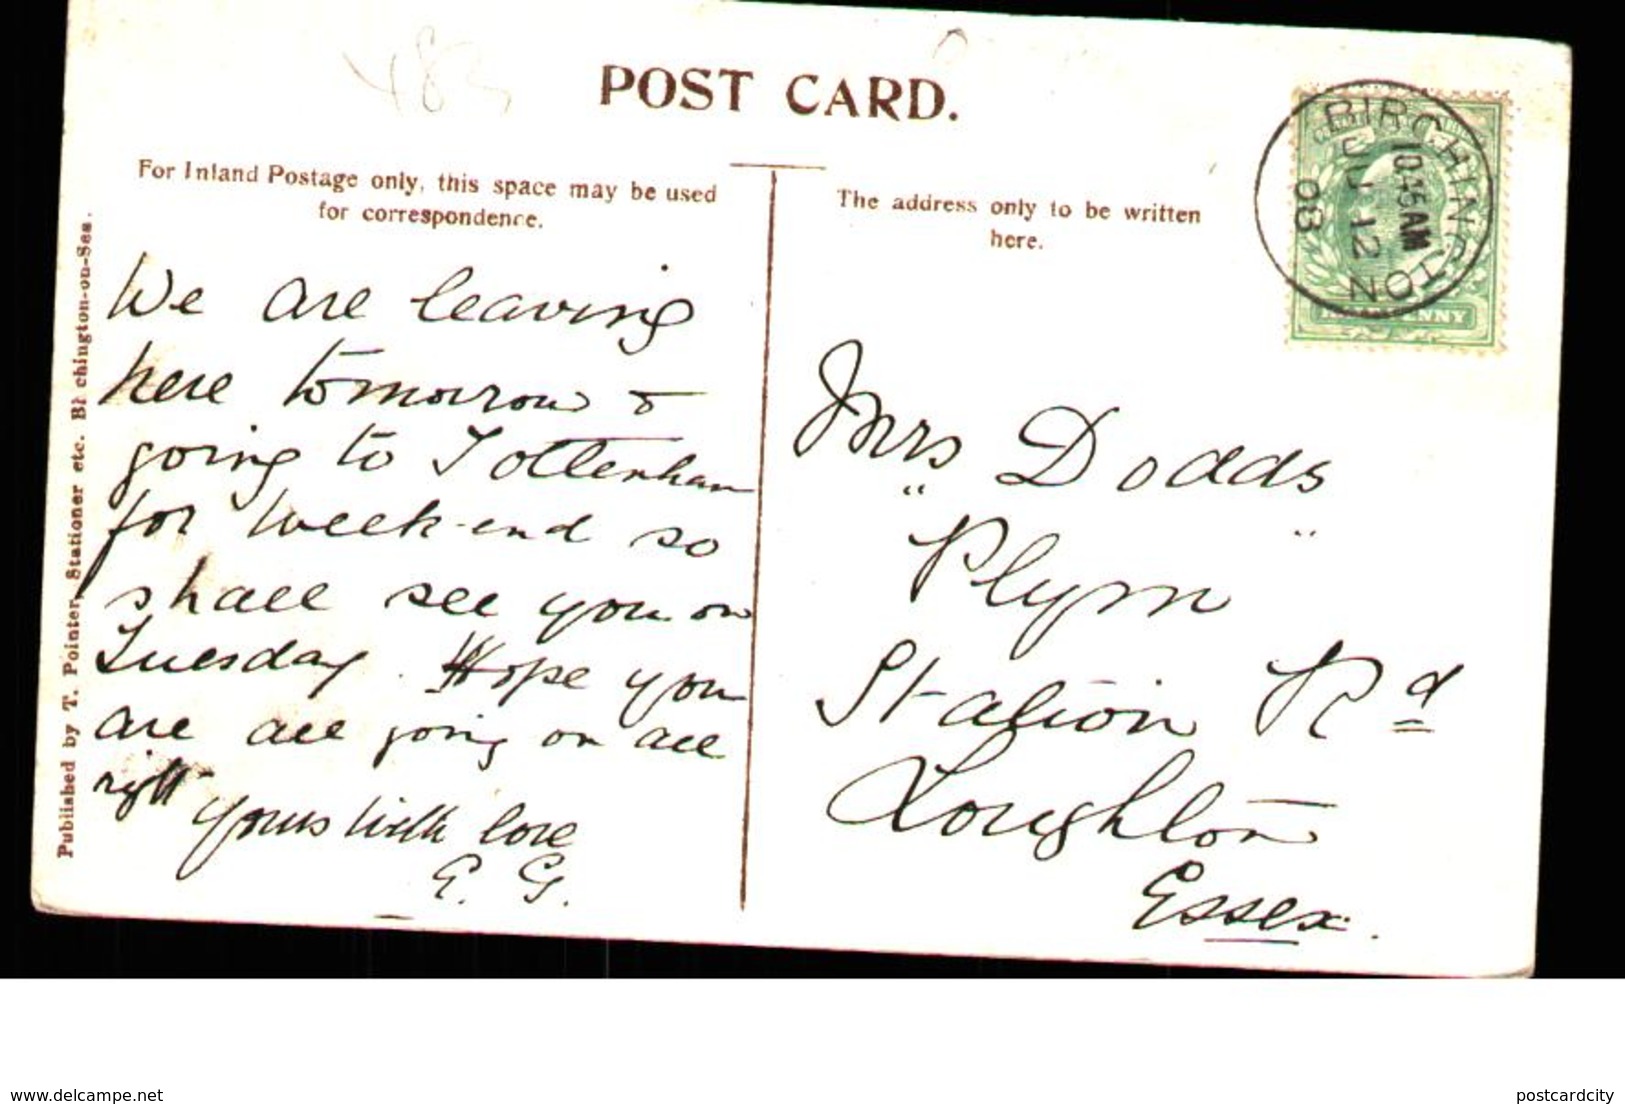 483
POST CARD.
For Inland Postage only, this space may be used
for correspondence.
The address only to be written
here.
BIRCHINGTON
10.45AM
JU 12
08
HALFPENNY
Published by T. Pointer, Stationer etc. Birchington-on-Sea.
We are leaving
here tomorrow &
going to Tottenham
for week-end so
shall see you on
Tuesday. Hope you
are all going on all
right
Yours with love
E. G.
Mrs Dodds
"Plym"
Station Rd
Loughton
Essex.
delcampe.net
postcardcity